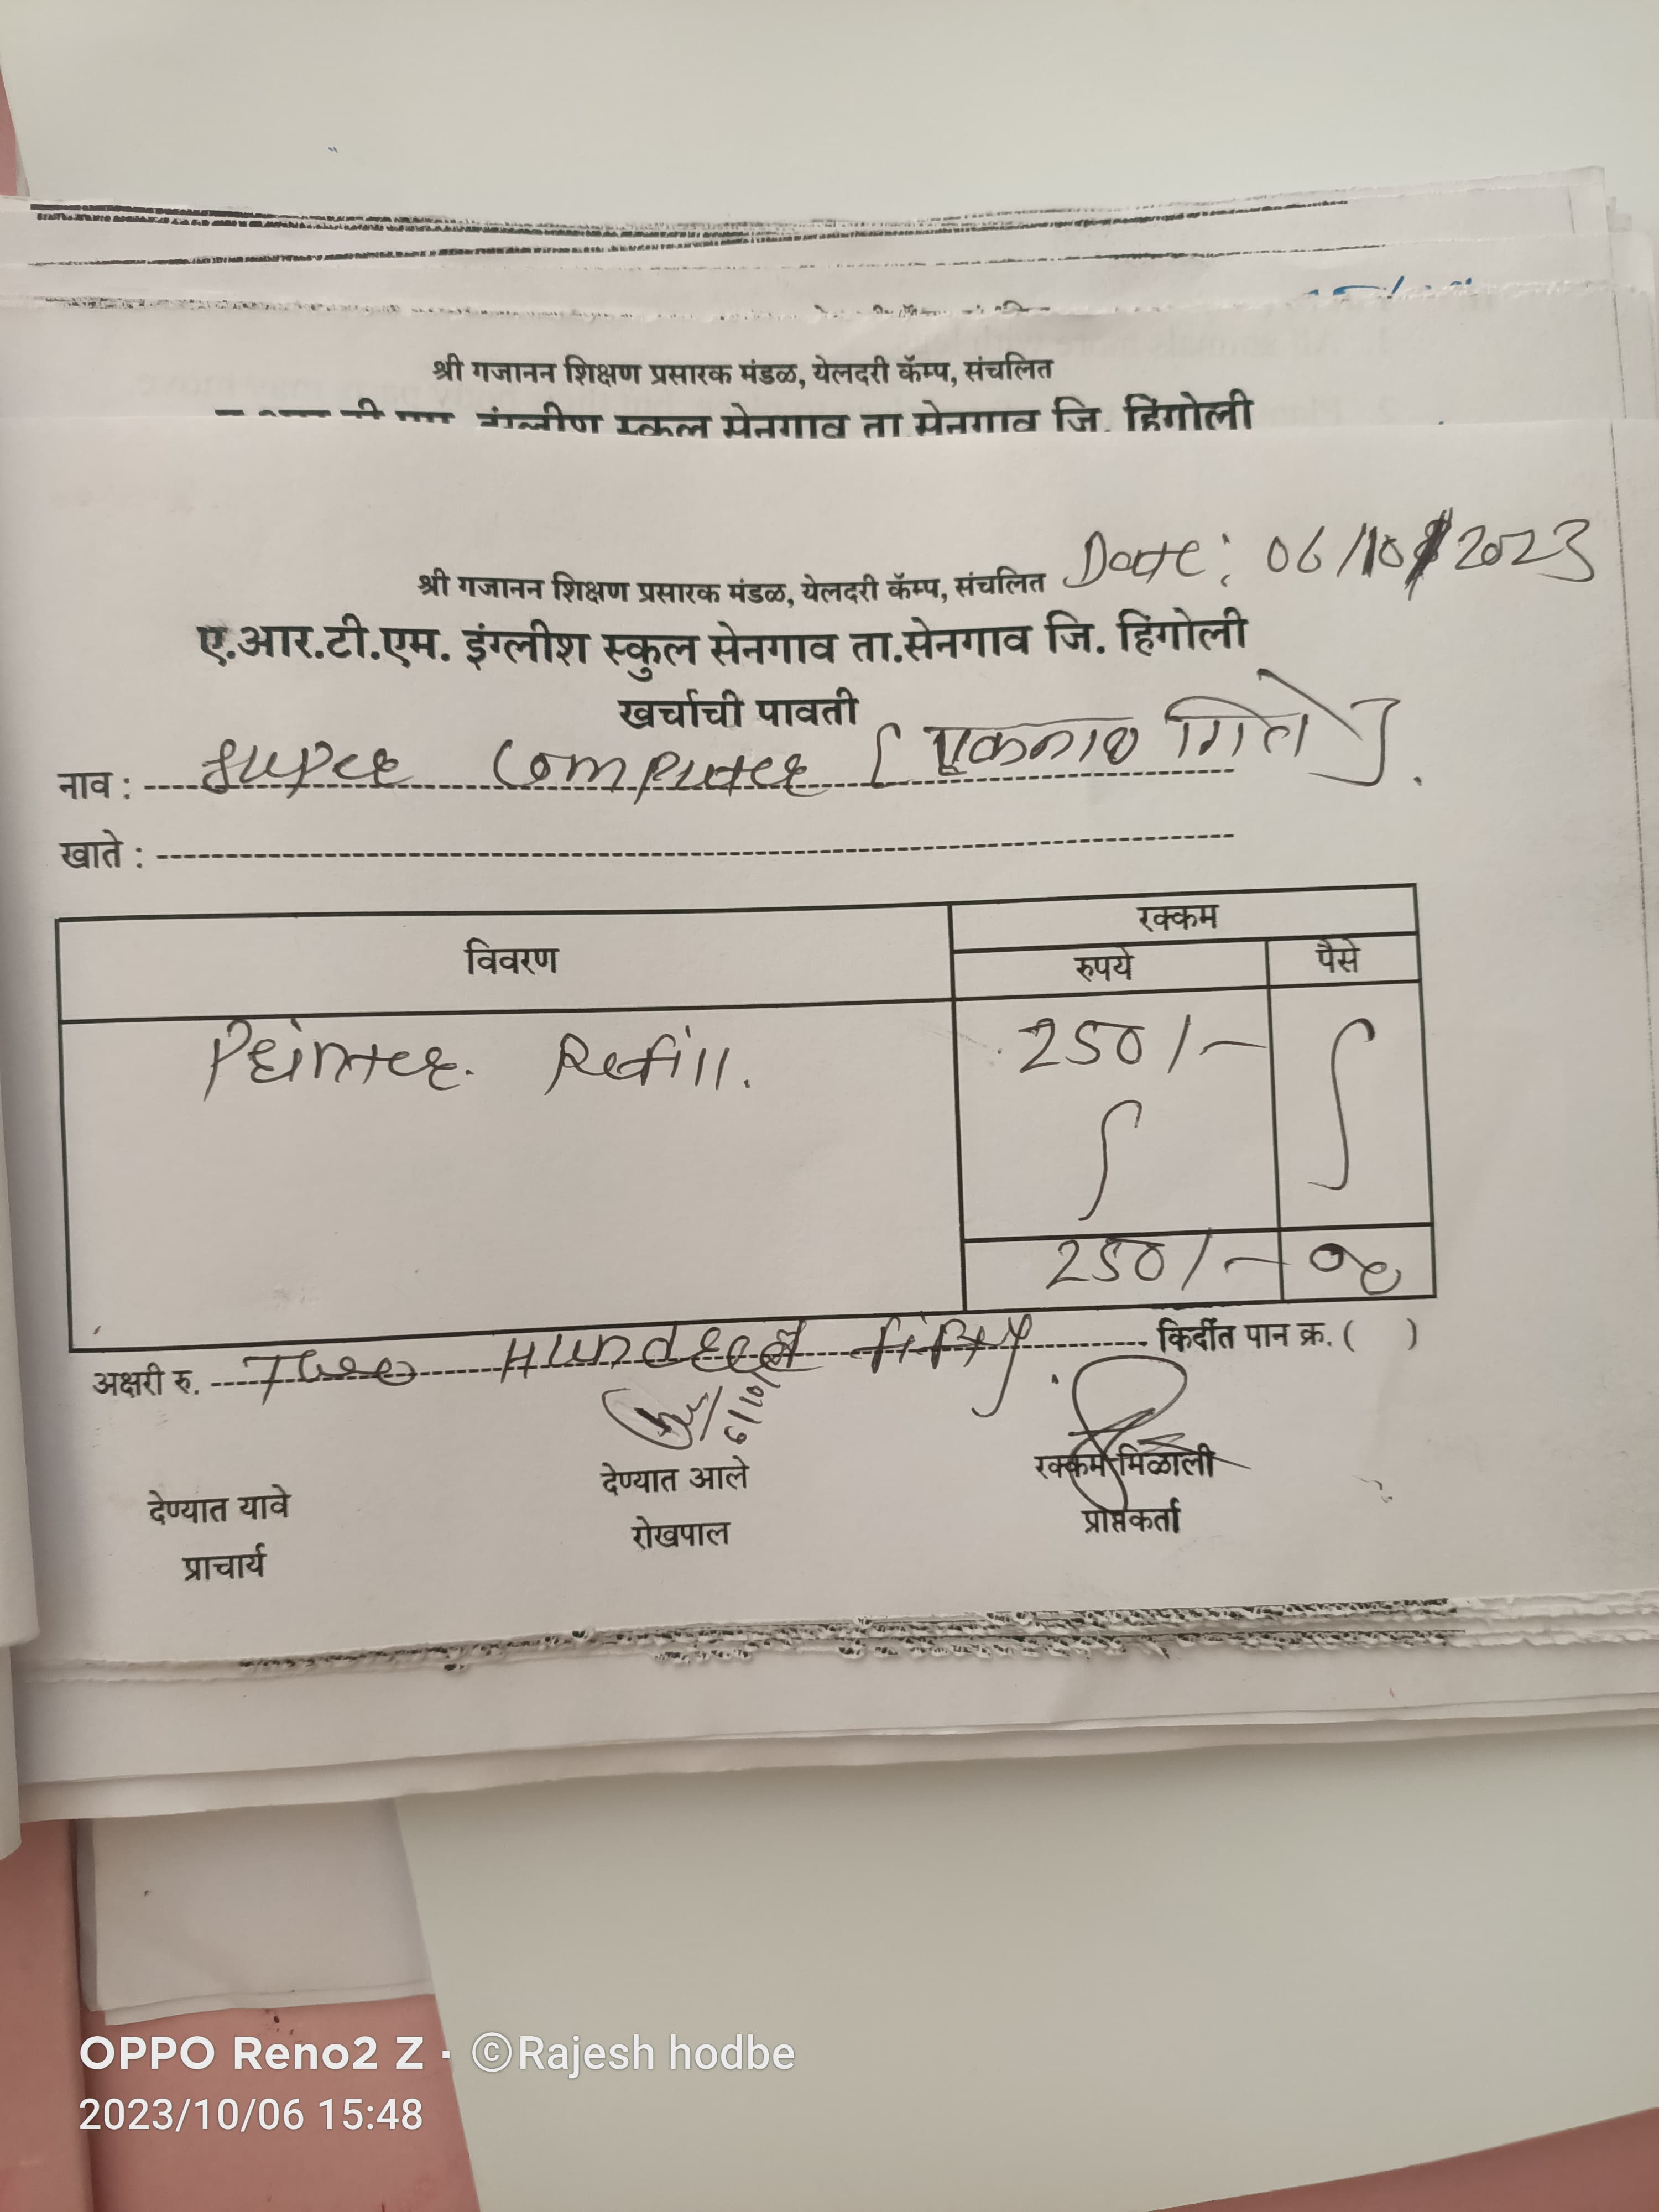 श्री गजानन शिक्षण प्रसारक मंडळ, येलदरी कॅम्प, संचलित
इंग्लीश स्कुल सेनगाव ता.सेनगाव जि. हिंगोली
Date: 06/10/2023
श्री गजानन शिक्षण प्रसारक मंडळ, येलदरी कॅम्प, संचलित
ए.आर.टी.एम. इंग्लीश स्कुल सेनगाव ता.सेनगाव जि. हिंगोली
खर्चाची पावती
नाव : Super Computer [एकनाथ गिते].
खाते :
विवरण रक्कम
रुपये पैसे
Printer. Refill. 250/-
250/- 00
अक्षरी रु. Two Hundred fifty. किर्दीत पान क्र. ( )
6/10
देण्यात यावे देण्यात आले रक्कम मिळाली
प्राचार्य रोखपाल प्राप्तकर्ता
OPPO Reno2 Z · ©Rajesh hodbe
2023/10/06 15:48